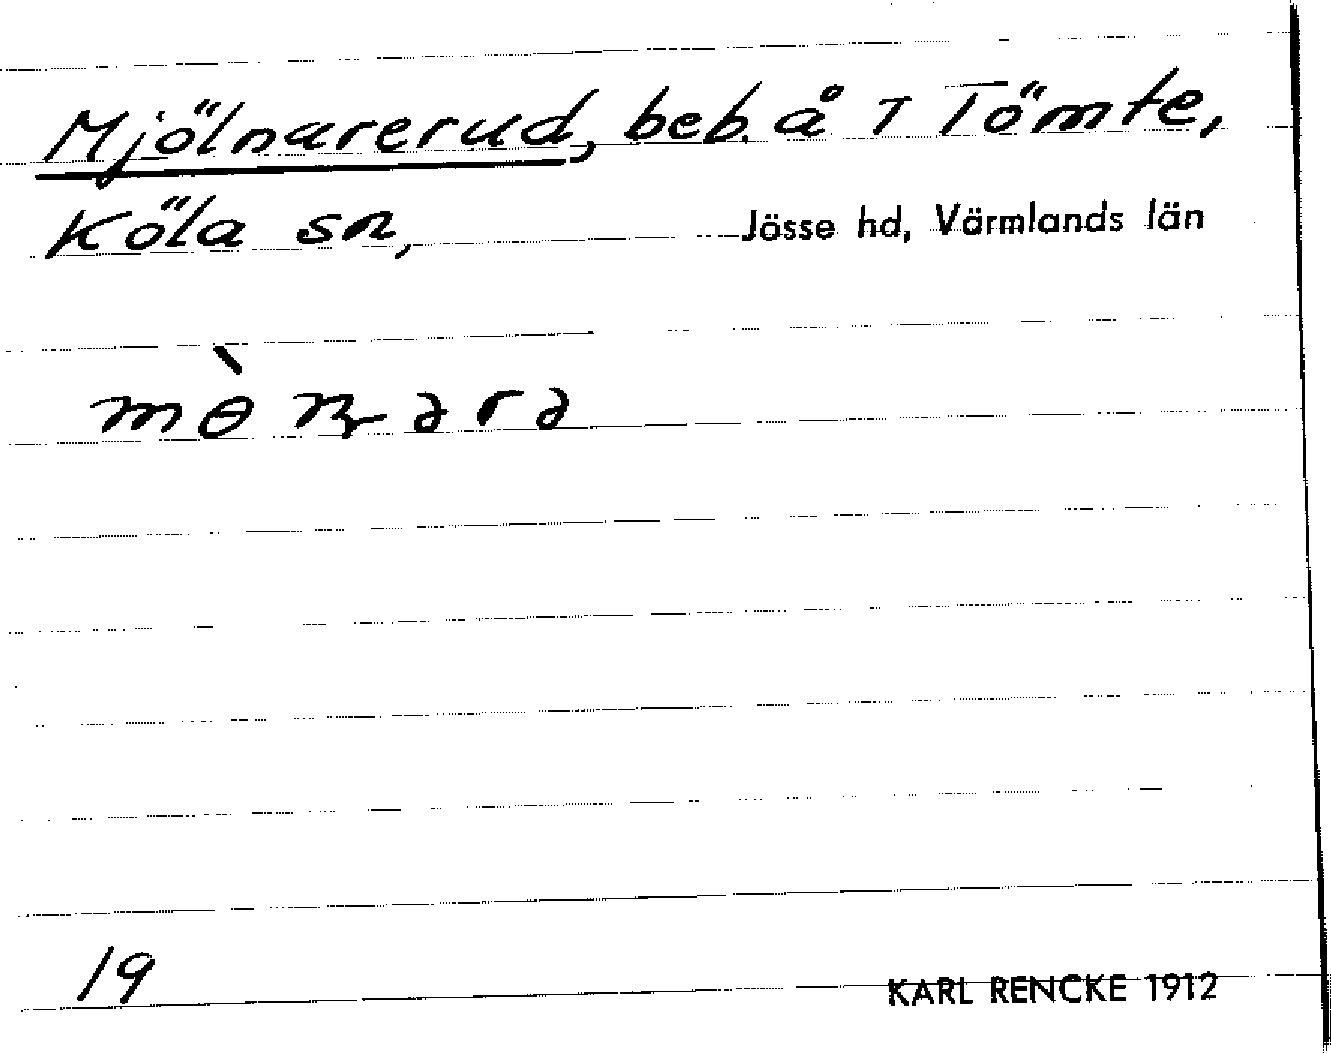 Mjölnarerud, beb. å 7 Tömte,
Köla sn, Jösse hd, Värmlands län
19
KARL RENCKE 1912